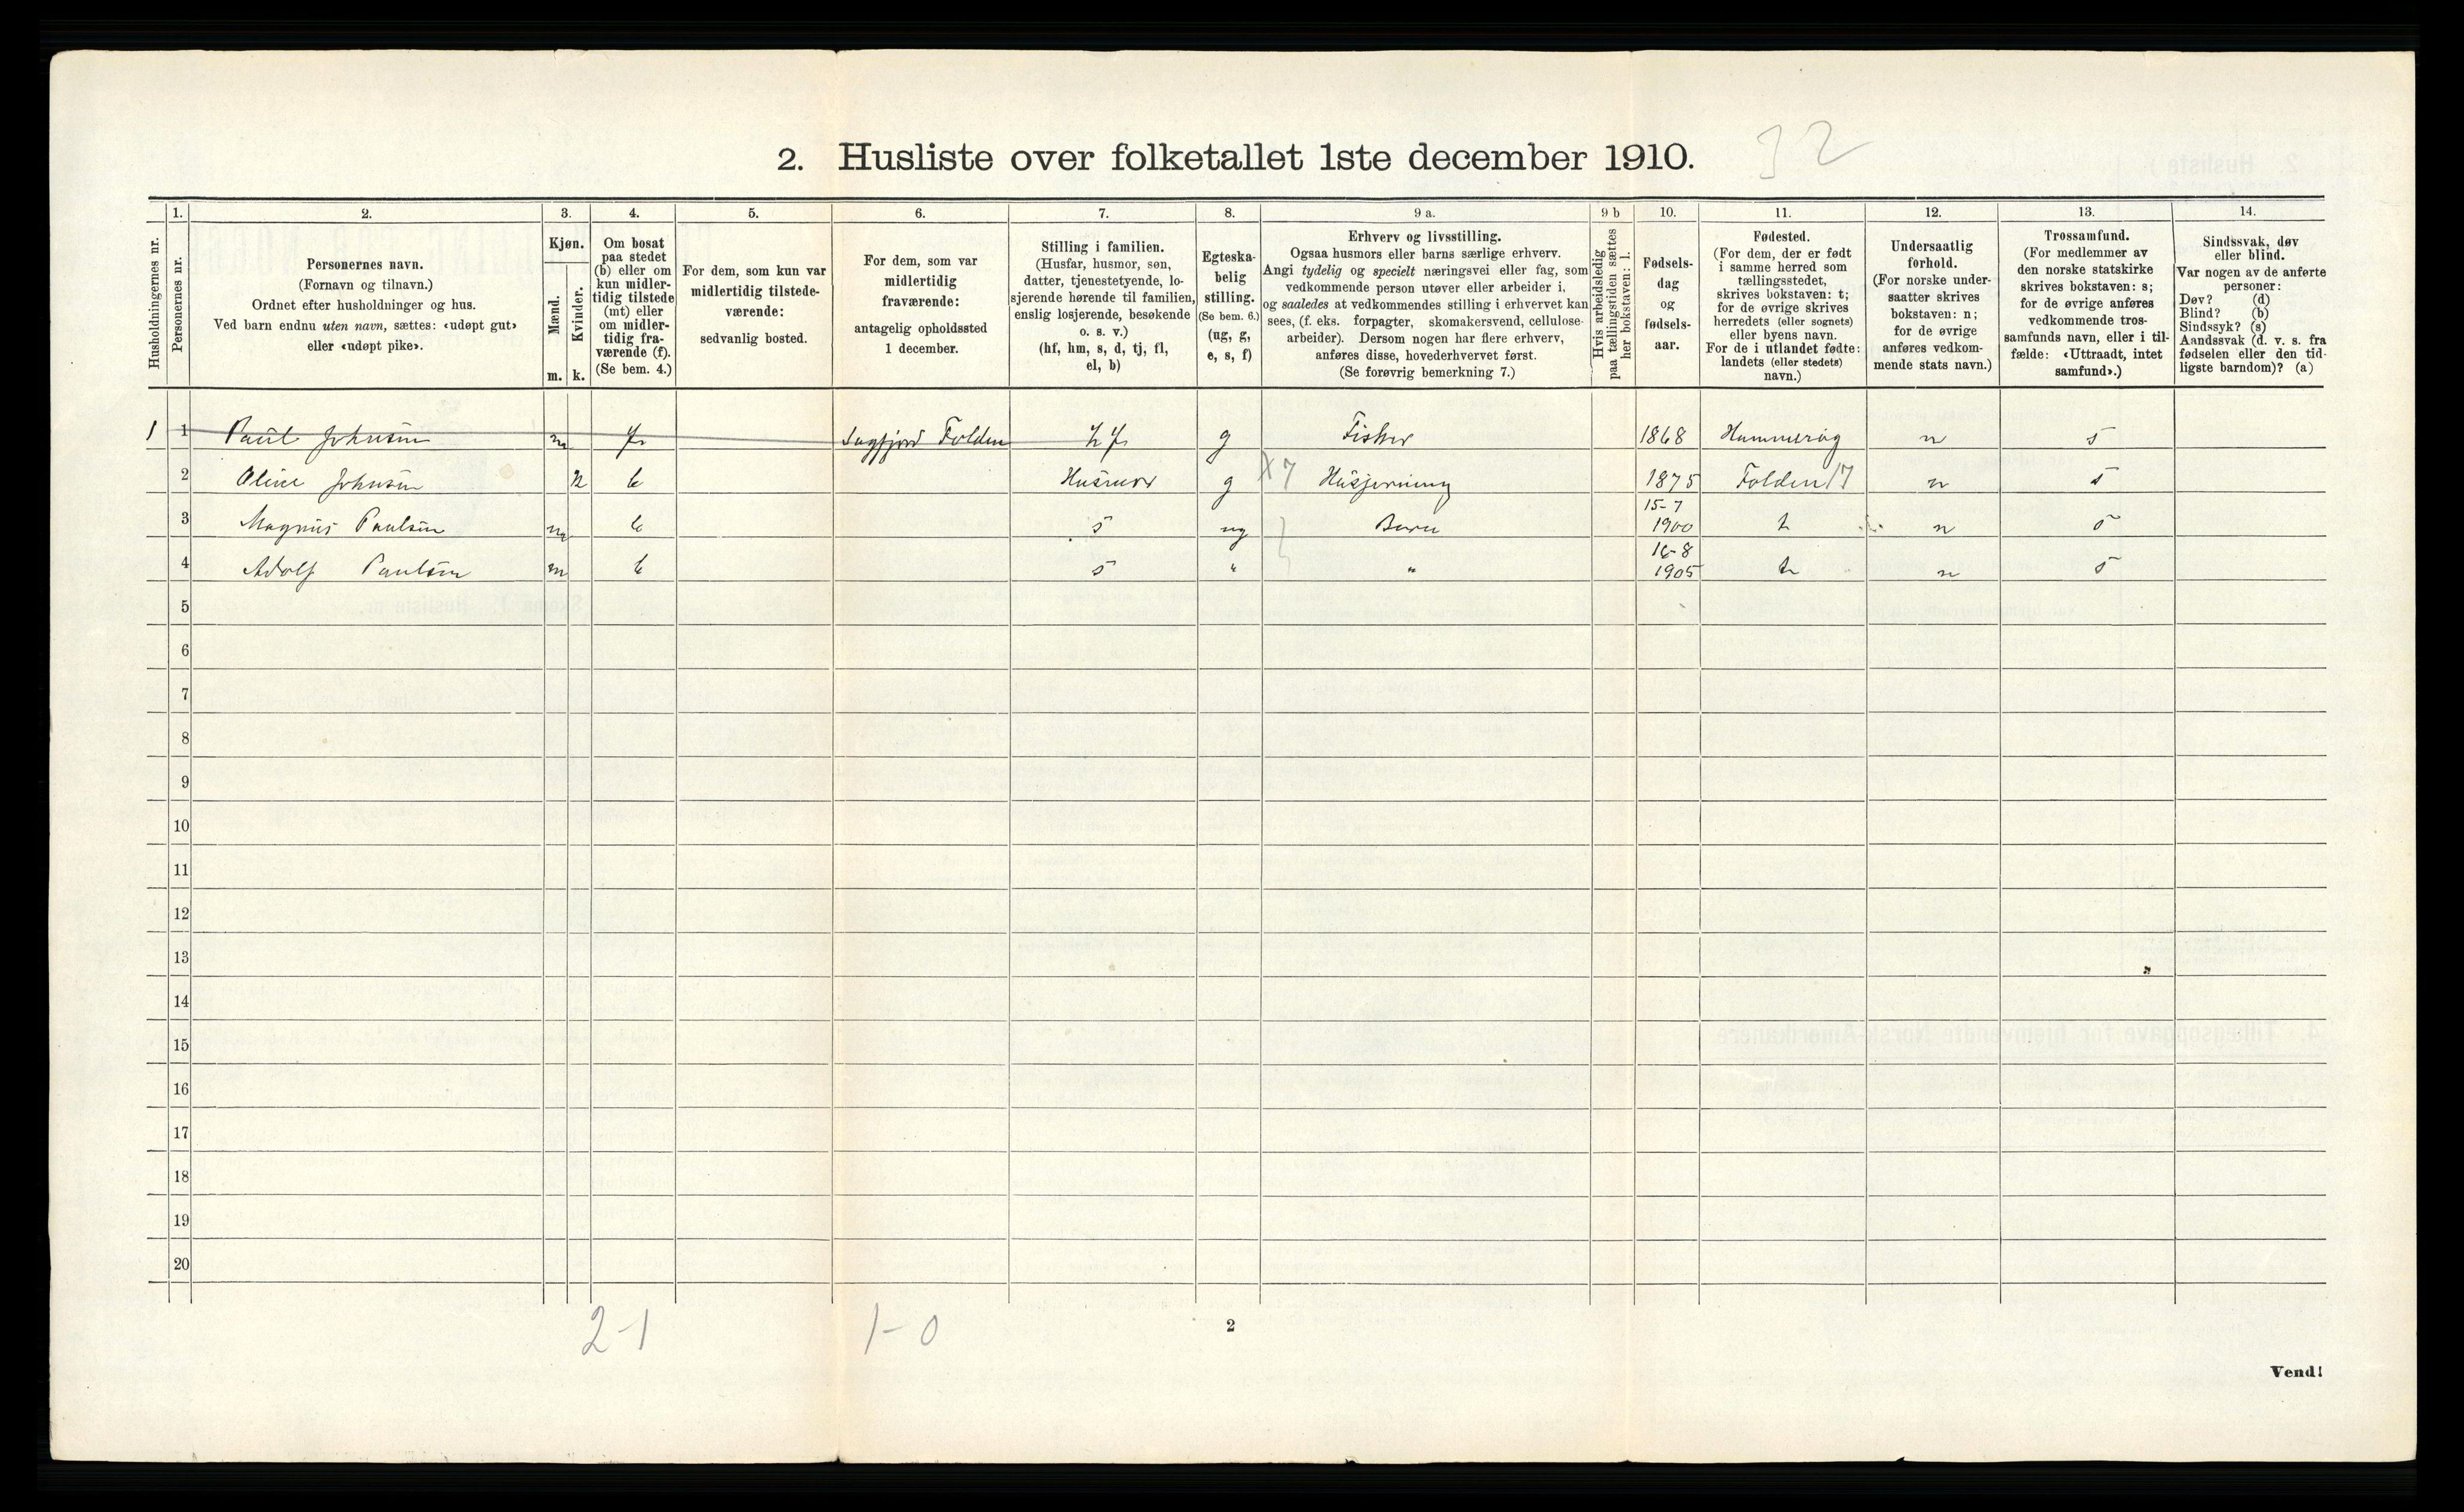 2. Husliste over folketallet 1ste december 1910.
32
Husholdningernes nr.
1.
Personernes nr.
2.
Personernes navn.
(Fornavn og tilnavn.)
Ordnet efter husholdninger og hus.
Ved barn endnu uten navn, sættes: «udøpt gut»
eller «udøpt pike».
3.
Kjøn.
Mænd.
Kvinder.
m. k.
4.
Om bosat
paa stedet
(b) eller om
kun midler-
tidig tilstede
(mt) eller
om midler-
tidig fra-
værende (f).
(Se bem. 4.)
5.
For dem, som kun var
midlertidig tilstede-
værende:
sedvanlig bosted.
6.
For dem, som var
midlertidig
fraværende:
antagelig opholdssted
1 december.
7.
Stilling i familien.
(Husfar, husmor, søn,
datter, tjenestetyende, lo-
sjerende hørende til familien,
enslig losjerende, besøkende
o. s. v.)
(hf, hm, s, d, tj, fl,
el, b)
8.
Egteska-
belig
stilling.
(Se bem. 6.)
(ug, g,
e, s, f)
9 a.
Erhverv og livsstilling.
Ogsaa husmors eller barns særlige erhverv.
Angi tydelig og specielt næringsvei eller fag, som
vedkommende person utøver eller arbeider i,
og saaledes at vedkommendes stilling i erhvervet kan
sees, (f. eks. forpagter, skomakersvend, cellulose-
arbeider). Dersom nogen har flere erhverv,
anføres disse, hovederhvervet først.
(Se forøvrig bemerkning 7.)
9 b
Hvis arbeidsledig
paa tællingstiden sættes
her bokstaven: l.
10.
Fødsels-
dag
og
fødsels-
aar.
11.
Fødested.
(For dem, der er født
i samme herred som
tællingsstedet,
skrives bokstaven: t;
for de øvrige skrives
herredets (eller sognets)
eller byens navn.
For de i utlandet fødte:
landets (eller stedets)
navn.)
12.
Undersaatlig
forhold.
(For norske under-
saatter skrives
bokstaven: n;
for de øvrige
anføres vedkom-
mende stats navn.)
13.
Trossamfund.
(For medlemmer av
den norske statskirke
skrives bokstaven: s;
for de øvrige anføres
vedkommende tros-
samfunds navn, eller i til-
fælde: «Uttraadt, intet
samfund».)
14.
Sindssvak, døv
eller blind.
Var nogen av de anførte
personer:
Døv? (d)
Blind? (b)
Sindssyk? (s)
Aandssvak (d. v. s. fra
fødselen eller den tid-
ligste barndom)? (a)
1 1 Paul Johnsen m f Sagfjord Folden hf g Fisker 1868 Hammerøy n s
2 Oline Johnsen k b Husmor g X7 Husgjerning 1875 Folden 17 n s
3 Magnus Paulsen m b s ug Barn 15-7 1900 t n s
4 Adolf Paulsen m b s " " 16-8 1905 t n s
5
6
7
8
9
10
11
12
13
14
15
16
17
18
19
20
2-1 1-0
2
Vend!